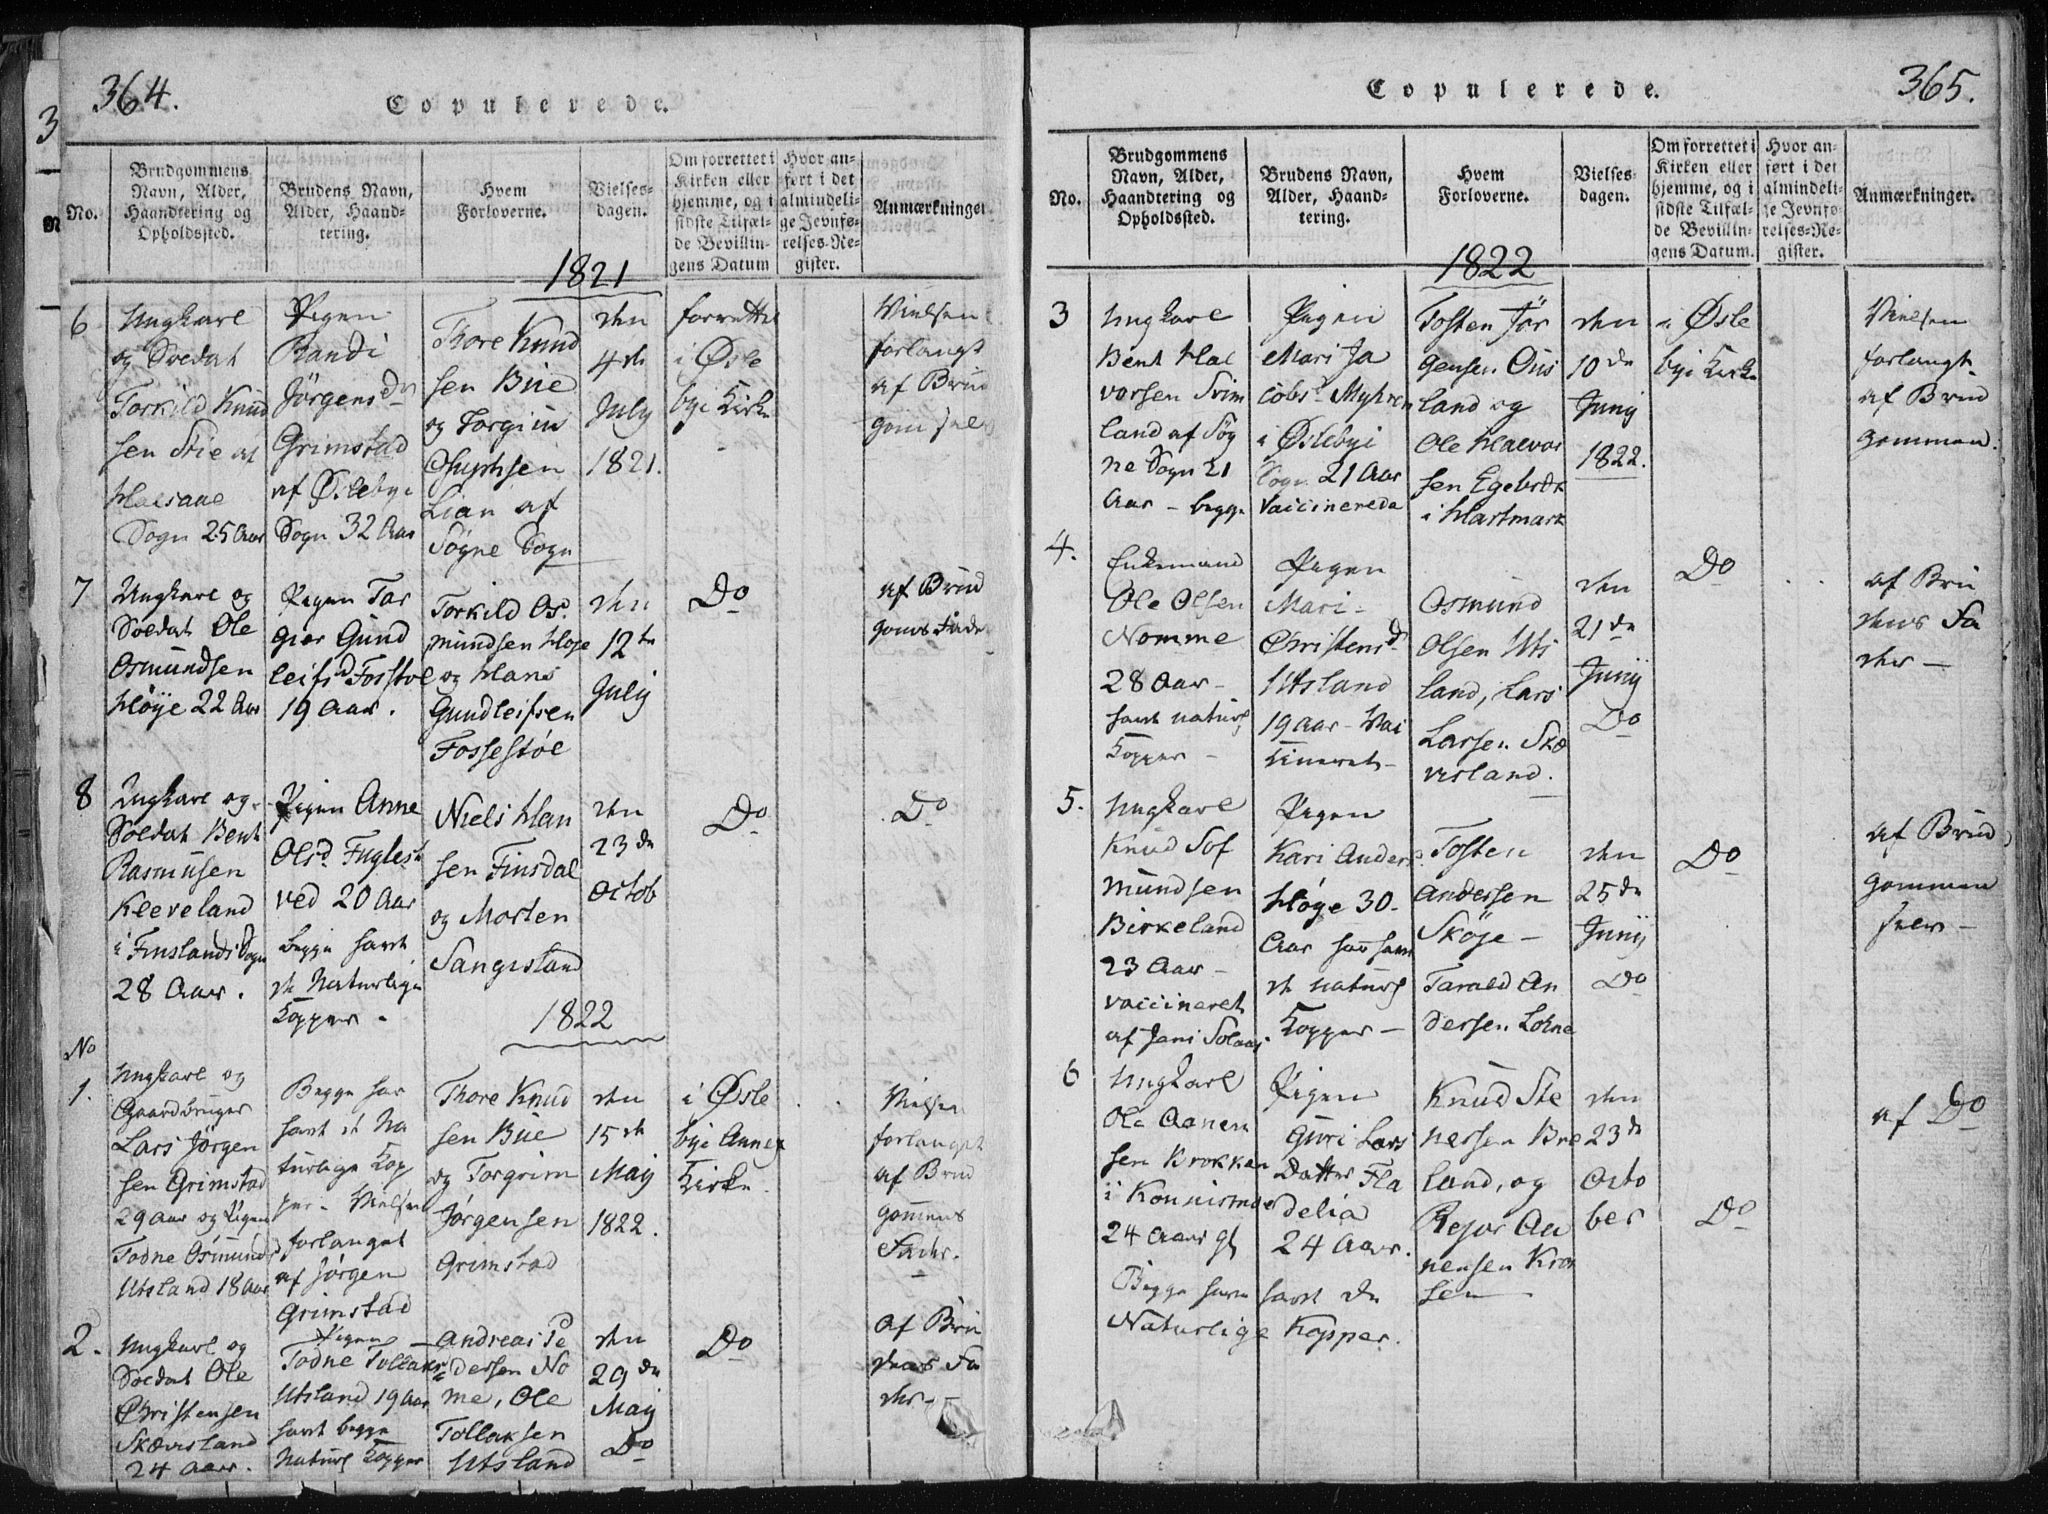 364.
Copulerede.
No.
Brudgommens
Navn, Alder,
Haandtering og
Opholdssted.
Brudens Navn,
Alder, Haand-
tering.
Hvem
Forloverne.
Vielses-
dagen.
Om forrettet i
Kirken eller
hjemme, og i
sidste Tilfæl-
de Bevillin-
gens Datum
Hvor an-
ført i det
almindeli-
ge Jevnfø-
relses-Re-
gister.
Anmærkninger
1821
6
Ungkarl
og Soldat
Torkild Knud
sen Stie af
Halsaae
Sogn 25 Aar
Pigen
Randi
Jörgensdr
Grimstad
af Øslebye
Sogn 32 Aar
Thore Knud
sen Bue
og Torgrim
Lian af
Søgne Sogn
den
4de
July
1821.
forrettet
i Øsle
bye Kirke
Vielsen
forlangt
af Brud
gom selv
7
Ungkarl og
Soldat Ole
Osmundsen
Høÿe 22 Aar
Pigen Tar
gier Gund
leifsd Fosstøl
19 Aar.
Torkild Os.
mundsen Høye
og Hans
Gundleifsen
Fossestøl
den
12te
July
Do
af Brud
goms Fader
8
Ungkarl og
Soldat Bent
Rasmusen
Kleveland
i Finslands Sogn
28 Aar.
Pigen Anne
Olsd. Fuglest
ved 20 Aar
begge havt
de Naturlige
Kopper.
Niels Han
sen Finsdal
og Morten
Sangesland
den
23de
Octob
Do
Do
1822
No
1.
Ungkarl og
Gaardbruger
Lars Jørgen
sen Grimstad
29 Aar og Pigen
Todne Osmundsd
Utsland 18 Aar
Begge har
havt de Na
turlige Kop
per. Vielsen
forlanget
af Jørgen
Grimstad
Thore Knud
sen Bue
og Torgrim
Jørgensen
Grimstad
den
15de
Maij
1822.
i Øsle
bye Annex
Kirke.
Vielsen
forlanget
af Brud
gommens
Fader.
2.
Ungkarl og
Soldat Ole
Christensen
Skævesland
24 Aar.
Pigen
Todne Tollaks
Utsland 19 Aar
havt begge
Naturl Kopper
Andreas Pe
dersen No
me, Ole
Tollaksen
Utsland
den
29de
Maij
Do
Do
af Bru
dens Fa
der
365.
Copulerede.
No.
Brudgommens
Navn, Alder,
Haandtering og
Opholdssted.
Brudens Navn,
Alder, Haand-
tering.
Hvem
Forloverne.
Vielses-
dagen.
Om forrettet i
Kirken eller
hjemme, og i
sidste Tilfæl-
de Bevillin-
gens Datum.
Hvor an-
ført i det
almindeli-
ge Jevnfø-
relses-Re-
gister.
Anmærkninger.
1822
3
Ungkarl
Bent Hal
vorsen Svim
land af Søg
ne Sogn 21
Aar - begge
Pigen
Mari Ja
cobsd Myhren
i Øslebye
Sogn 21 Aar
vaccinerede
Tosten Jør
gensen Ous
land og
Ole Halvor
sen Egebrek
i Hartmark
den
10de
Junij
1822.
i Øsle
bye Kirke
Vielsen
forlangt
af Brud
gommen.
4.
Enkemand
Ole Olsen
Nomme
28 Aar -
havt naturl
Kopper -
Pigen
Mari
Christensd
Utsland
19 Aar - Vac
cineret -
Osmund
Olsen Uts
land, Lars
Larsen Skæ
vesland.
den
21de
Junij
Do
Do
af Bru
dens Fa
der -
5.
Ungkarl
Knud Sof
mundsen
Birkeland
23 Aar -
vaccineret
af Jens Solaas
Pigen
Kari Anders
Høye 30
Aar har havt
de naturl
Kopper -
Tosten
Andersen
Skøje -
Tarald An
dersen Lohne
den
25de
Junij
Do
Do
af Brud
gommen
selv -
6
Ungkarl
Ole Aanen
sen Krokken
i Konnismoe
24 Aar gl
Pigen
Guri Lars
Datter Fla
delia
24 Aar.
Begge have havt de
Naturlige Kopper.
Knud Ste
nersen Bre
land, og
Rejer Aa
nensen Kro
ken
den
23de
Octo
ber
Do
af Do